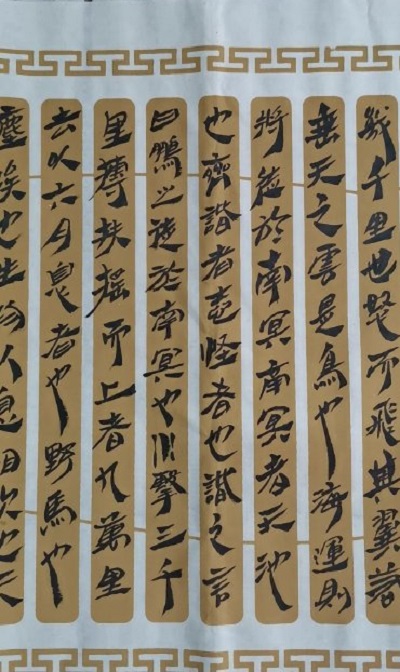 幾千里也怒而飛其翼若
垂天之雲是鳥也海運則
將徙於南冥南冥者天池
也齊諧者志怪者也諧之言
曰鵬之徙於南冥也水擊三千
里摶扶搖而上者九萬里
去以六月息者也野馬也
塵埃也生物以息相吹也天